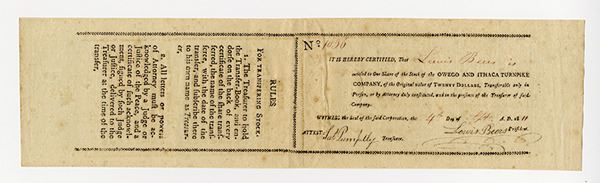 RULES
FOR TRANSFERRING STOCK.
1. The Treasurer to hold
the Transfer-Book, and en-
dorse on the back of every
certificate of the share trans-
ferred, the name of the trans-
feree, with the date of the
transfer, and subscribe there
to his own name as Treasur-
er,
2. All letters or powers
of Attorney must be ac-
knowledged by a Judge or
Justice of the Peace, and a
certificate of such acknowl-
ment, signed by such Judge
or Justice, delivered to the
Treasurer at the time of the
transfer,
No. 1036
IT IS HEREBY CERTIFIED, That Lewis Beers is
entitled to One Share of the Stock of the OWEGO AND ITHACA TURNPIKE
COMPANY, of the original value of TWENTY DOLLARS, Transferable only in
Person, or by Attorney duly constituted, and in the presence of the Treasurer of said
Company.
WITNESS, the Seal of the said Corporation, the 4th Day of A.D. 18 11
Lewis Beers President.
ATTEST Pumpelly Treasurer.